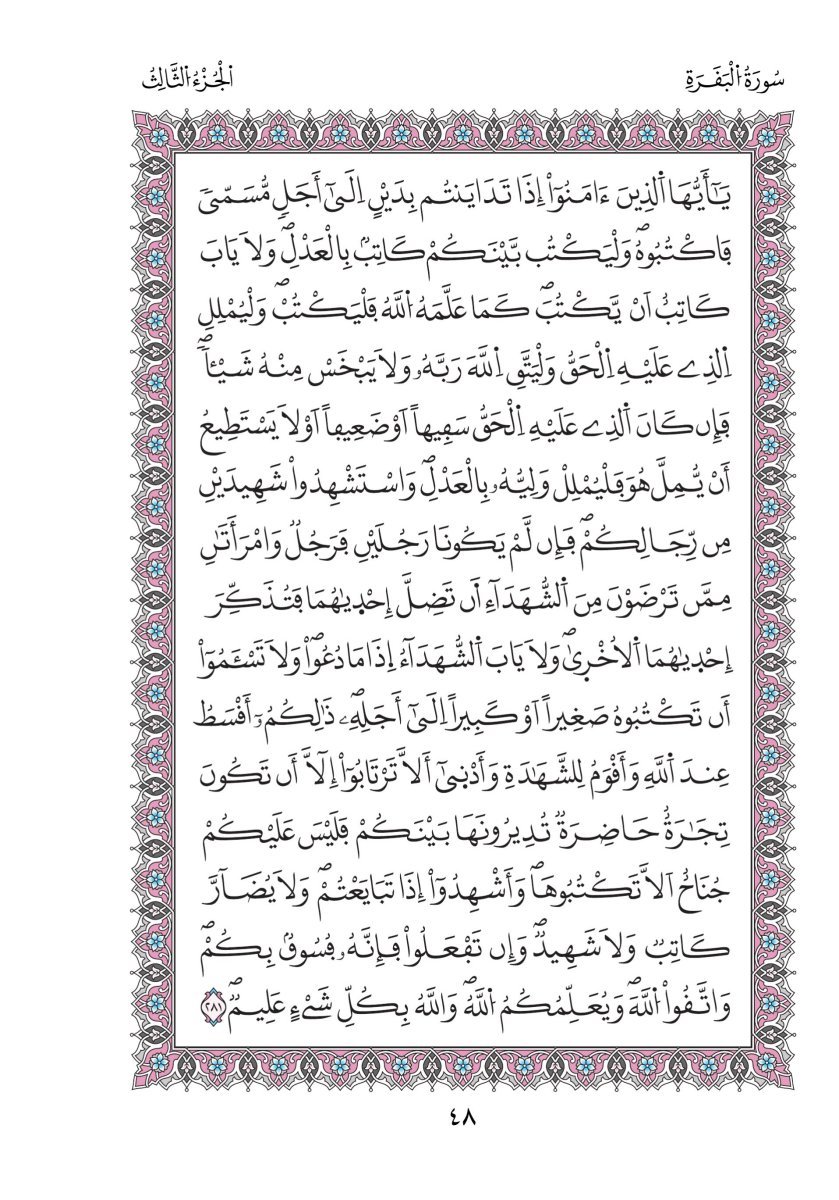 سُورَةُ اُ۬لْبَقَرَةِ
اَ۬لْجُزْءُ اُ۬لثَّالِثُ
يَٰٓأَيُّهَا اَ۬لذِينَ ءَامَنُوٓاْ إِذَا تَدَايَنتُم بِدَيْنٍ اِلَىٰٓ أَجَلٖ مُّسَمّىٗ
فَاكْتُبُوهُۖ وَلْيَكْتُب بَّيْنَكُمْ كَاتِبُۢ بِالْعَدْلِۖ وَلَا يَابَ
كَاتِبٌ اَنْ يَّكْتُبَۖ كَمَا عَلَّمَهُ اُ۬للَّهُ فَلْيَكْتُبْۖ وَلْيُمْلِلِ
اِ۬لذِے عَلَيْهِ اِ۬لْحَقُّ وَلْيَتَّقِ اِ۬للَّهَ رَبَّهُۥ وَلَا يَبْخَسْ مِنْهُ شَيْـٔاٗۖ
فَإِن كَانَ اَ۬لذِے عَلَيْهِ اِ۬لْحَقُّ سَفِيهاً اَوْ ضَعِيفاً اَوْ لَا يَسْتَطِيعُ
أَنْ يُّمِلَّ هُوَ فَلْيُمْلِلْ وَلِيُّهُۥ بِالْعَدْلِۖ وَاسْتَشْهِدُواْ شَهِيدَيْنِ
مِن رِّجَالِكُمْۖ فَإِن لَّمْ يَكُونَا رَجُلَيْنِ فَرَجُلٞ وَامْرَأَتَٰنِ
مِمَّن تَرْضَوْنَ مِنَ اَ۬لشُّهَدَآءِ اَ۬ن تَضِلَّ إِحْد۪يٰهُمَا فَتُذَكِّرَ
إِحْد۪يٰهُمَا اَ۬لُاخْر۪يٰۖ وَلَا يَابَ اَ۬لشُّهَدَآءُ اِ۪ذَا مَا دُعُواْۖ وَلَا تَسْـَٔمُوٓاْ
أَن تَكْتُبُوهُ صَغِيراً اَوْ كَبِيراً اِلَىٰٓ أَجَلِهِۦۖ ذَٰلِكُمُۥٓ أَقْسَطُ
عِندَ اَ۬للَّهِ وَأَقْوَمُ لِلشَّهَٰدَةِ وَأَدْن۪يٰٓ أَلَّا تَرْتَابُوٓاْ إِلَّآ أَن تَكُونَ
تِجَٰرَةٌ حَاضِرَةٞ تُدِيرُونَهَا بَيْنَكُمْ فَلَيْسَ عَلَيْكُمْ
جُنَاحٌ اَلَّا تَكْتُبُوهَاۖ وَأَشْهِدُوٓاْ إِذَا تَبَايَعْتُمْۖ وَلَا يُضَآرَّ
كَاتِبٞ وَلَا شَهِيدٞۖ وَإِن تَفْعَلُواْ فَإِنَّهُۥ فُسُوقُۢ بِكُمْۖ
وَاتَّقُواْ اُ۬للَّهَۖ وَيُعَلِّمُكُمُ اُ۬للَّهُۖ وَاللَّهُ بِكُلِّ شَےْءٍ عَلِيمٞۖ ٢٨١
٤٨